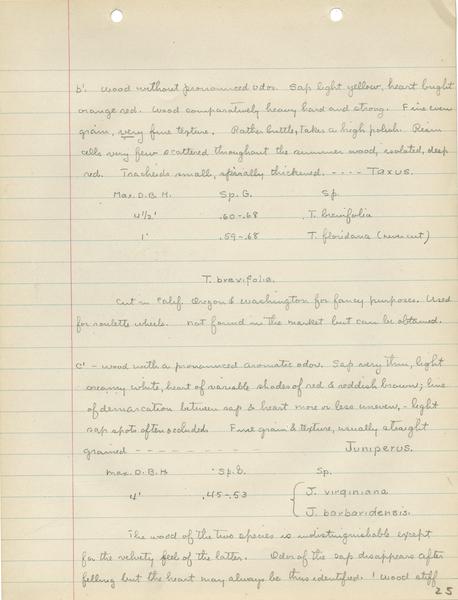 b'. Wood without pronounced odor. Sap light yellow, heart bright
orange red. Wood comparatively heavy hard and strong. Fine even
grain, very fine texture. Rather brittle, takes a high polish. Resin
cells very few scattered throughout the summer wood, isolated, deep
red. Tracheids small, spirally thickened. ---- Taxus.
Max. D.B.H. Sp. G. Sp.
4 1/2' .60-.68 T. brevifolia
1' .59-.68 T. floridana (never cut)
T. brevifolia.
Cut in Calif. Oregon & Washington for fancy purposes. Used
for roulette wheels. Not found in the market but can be obtained.
c' - Wood with a pronounced aromatic odor. Sap very thin, light
creamy white, heart of variable shades of red & reddish brown; line
of demarcation between sap & heart more or less uneven, - light
sap spots often occluded. Fine grain & texture, usually straight
grained - - - - - - - - Juniperus.
Max. D.B.H Sp. G. Sp.
4' .45-.53 J. virginiana
J. barbadensis.
The wood of the two species is indistinguishable except
for the velvety feel of the latter. Odor of the sap disappears after
felling but the heart may always be thus identified. Wood stiff
25